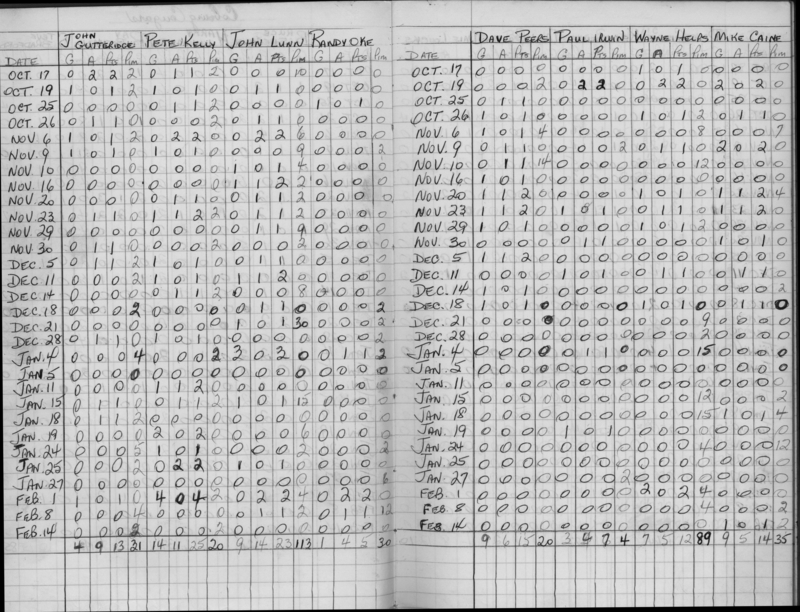 JOHN GUTTERIDGE PETE KELLY JOHN LUNN RANDY OKE
DATE G A Pts Pim G A Pts Pim G A Pts Pim G A Pts Pim
OCT. 17 0 2 2 2 0 1 1 2 0 0 0 10 0 0 0 0
OCT. 19 1 0 1 2 1 0 1 0 0 1 1 0 0 0 0 0
OCT. 25 0 0 0 0 0 1 1 2 0 0 0 0 1 0 1 0
OCT. 26 0 1 1 0 0 0 0 2 0 1 1 0 0 0 0 0
NOV 6 1 0 1 2 0 2 2 0 0 2 2 6 0 0 0 0
NOV. 9 1 0 1 0 1 0 1 0 0 0 0 9 0 0 0 2
NOV. 10 0 0 0 0 0 0 0 0 1 0 1 4 0 0 0 0
NOV. 16 0 0 0 0 0 0 0 0 1 1 2 2 0 0 0 0
NOV. 20 0 0 0 0 0 1 1 0 0 1 1 2 0 0 0 0
NOV. 23 0 1 1 0 1 1 2 2 0 1 1 2 0 0 0 0
NOV. 29 0 0 0 0 0 0 0 0 0 1 1 9 0 0 0 0
NOV. 30 0 1 1 0 0 0 0 2 0 0 0 2 0 0 0 0
DEC. 5 0 1 1 2 1 0 1 0 0 1 1 0 0 0 0 0
DEC. 11 0 0 0 2 1 0 1 0 1 1 2 0 0 0 0 0
DEC. 14 0 0 0 0 0 1 1 2 0 0 0 8 0 0 0 0
DEC. 18 0 0 0 2 0 0 0 0 0 1 1 0 0 0 0 2
DEC. 21 0 0 0 0 0 0 0 0 1 0 1 30 0 0 0 2
DEC. 28 0 1 1 0 1 0 1 0 0 0 0 0 0 0 0 2
JAN. 4 0 0 0 4 0 0 0 2 3 0 3 0 0 1 1 2
JAN. 5 0 0 0 0 0 0 0 0 0 0 0 0 0 0 0 0
JAN. 11 0 0 0 0 1 1 2 0 0 0 0 0 0 0 0 0
JAN. 15 0 1 1 0 0 1 1 2 1 0 1 15 0 0 0 0
JAN. 18 0 1 1 2 0 0 0 0 0 0 0 0 0 0 0 0
JAN. 19 0 0 0 0 2 0 2 0 0 0 0 6 0 0 0 0
JAN. 24 0 0 0 5 1 0 1 0 0 0 0 2 0 0 0 2
JAN. 25 0 0 0 2 0 2 2 0 1 0 1 0 0 0 0 0
JAN. 27 0 0 0 0 0 0 0 0 0 0 0 0 0 0 0 6
FEB. 1 1 0 1 0 4 0 4 2 0 2 2 4 0 2 2 0
FEB. 8 0 0 0 4 0 0 0 0 0 1 1 2 0 1 1 12
FEB. 14 0 0 0 2 0 0 0 2 0 0 0 0 0 0 0 0
4 9 13 31 14 11 25 20 9 14 23 113 1 4 5 30
DAVE PEERS PAUL IRWIN WAYNE HELPS MIKE CAINE
DATE G A Pts Pim G A Pts Pim G A Pts Pim G A Pts Pim
OCT. 17 0 0 0 0 0 0 0 0 1 0 1 0 0 0 0 0
OCT. 19 0 0 0 2 0 2 2 0 0 2 2 0 2 0 2 0
OCT. 25 0 1 1 0 0 0 0 0 0 0 0 0 0 0 0 0
OCT. 26 1 0 1 0 0 0 0 0 1 0 1 2 0 1 1 0
NOV. 6 1 0 1 4 0 0 0 0 0 0 0 8 0 0 0 7
NOV. 9 0 1 1 0 0 0 0 2 0 1 1 0 2 0 2 0
NOV. 10 0 1 1 14 0 0 0 0 0 0 0 12 0 0 0 0
NOV. 16 1 0 1 0 0 0 0 0 0 0 0 0 0 0 0 0
NOV. 20 1 1 2 0 0 0 0 0 1 0 1 0 1 1 2 4
NOV 23 1 1 2 0 1 0 1 0 0 1 1 0 1 1 2 0
NOV. 29 1 0 1 0 0 0 0 0 1 0 1 2 0 0 0 0
NOV. 30 0 0 0 0 0 1 1 0 0 0 0 0 1 0 1 0
DEC. 5 1 1 2 0 0 0 0 0 0 0 0 0 0 0 0 0
DEC. 11 0 0 0 0 1 0 1 0 0 1 1 0 0 1 1 0
DEC. 14 1 0 1 0 0 0 0 0 0 0 0 0 0 0 0 2
DEC. 18 1 0 1 0 0 0 0 0 1 0 1 0 0 1 1 0
DEC. 21 0 0 0 0 0 0 0 0 0 0 0 9 0 0 0 0
DEC. 28 0 0 0 0 0 0 0 0 0 0 0 2 0 0 0 0
JAN. 4 0 0 0 0 0 1 1 0 0 0 0 15 0 0 0 0
JAN. 5 0 0 0 0 0 0 0 0 0 0 0 0 0 0 0 0
JAN. 11 0 0 0 0 0 0 0 0 0 0 0 0 0 0 0 0
JAN. 15 0 0 0 0 0 0 0 0 0 0 0 12 0 0 0 2
JAN. 18 0 0 0 0 0 0 0 0 0 0 0 15 1 0 1 4
JAN. 19 0 0 0 0 1 0 1 0 0 0 0 0 0 0 0 0
JAN. 24 0 0 0 0 0 0 0 0 0 0 0 4 0 0 0 12
JAN. 25 0 0 0 0 0 0 0 0 0 0 0 0 0 0 0 0
JAN. 27 0 0 0 0 0 0 0 2 0 0 0 0 0 0 0 0
FEB. 1 0 0 0 0 0 0 0 0 2 0 2 4 0 0 0 0
FEB. 8 0 0 0 0 0 0 0 0 0 0 0 4 0 0 0 2
FEB. 14 0 0 0 0 0 0 0 0 0 0 0 0 1 0 1 2
9 6 15 20 3 4 7 4 7 5 12 89 9 5 14 35